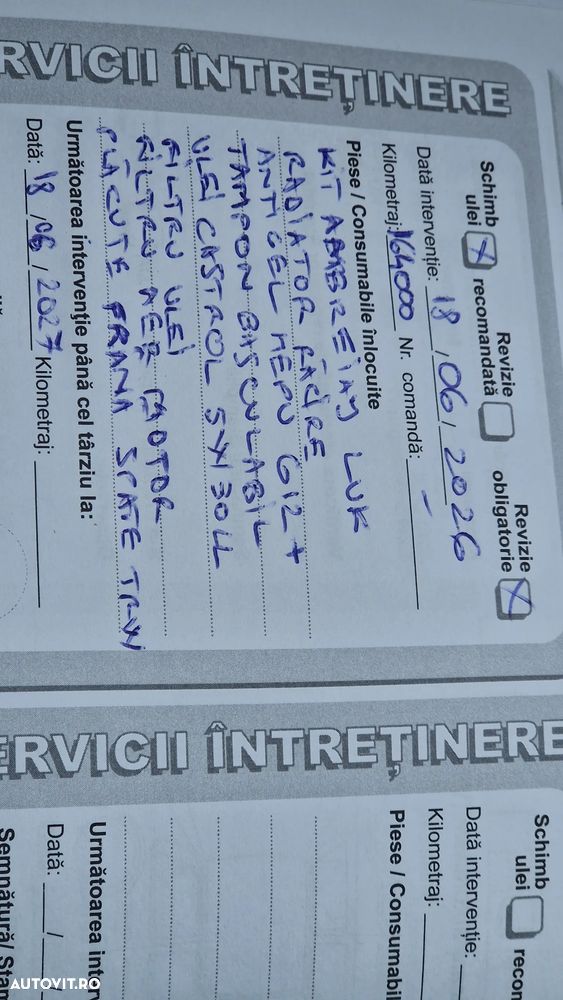 SERVICII ÎNTREȚINERE
Schimb ulei X Revizie recomandată Revizie obligatorie X
Dată intervenție: 18 / 06 / 2026
Kilometraj: 164000 Nr. comandă: -
Piese / Consumabile înlocuite
KIT AMBREIAJ LUK
RADIATOR RĂCIRE
ANTIGEL HEPU G12+
TAMPON BASCULABIL
ULEI CASTROL 5W30 LL
FILTRU ULEI
FILTRU AER MOTOR
PLĂCUTE FRANA SPATE TRW
Următoarea intervenție până cel târziu la:
Dată: 18 / 06 / 2027 Kilometraj:
ERVICII ÎNTREȚINERE
Schimb ulei recon
Dată intervenție:
Kilometraj:
Piese / Consumabil
Următoarea interv
Dată: / /
Semnătură/ Stam
AUTOVIT.RO